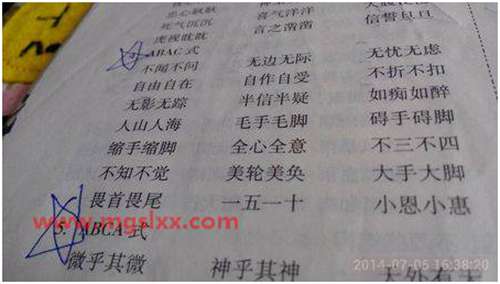 忠心耿耿 喜气洋洋
死气沉沉 言之凿凿 信誓旦旦
虎视眈眈
ABAC 式
不闻不问 无边无际 无忧无虑
自由自在 自作自受 不折不扣
无影无踪 半信半疑 如痴如醉
人山人海 毛手毛脚 碍手碍脚
缩手缩脚 全心全意 不三不四
不知不觉 美轮美奂 大手大脚
畏首畏尾 一五一十 小恩小惠
www.mgslxx.com
5. ABCA 式
微乎其微 神乎其神 天外有天
2014-07-05 16:38:20